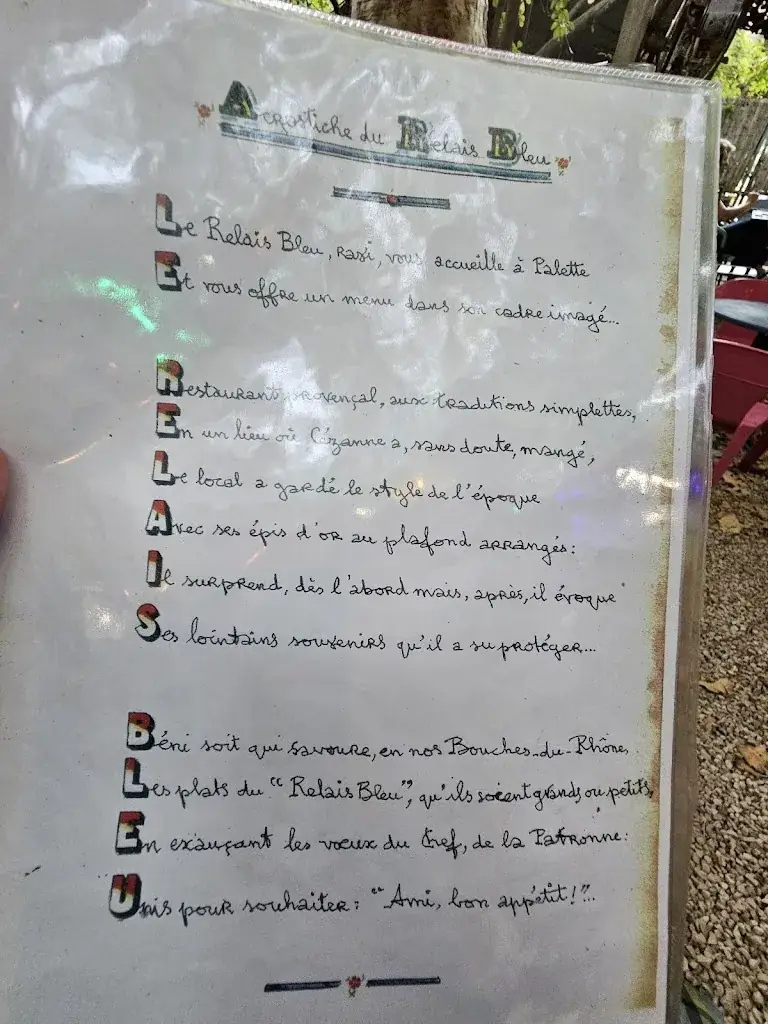 Acrostiche du Relais Bleu
Le Relais Bleu, ravi, vous accueille à Palette
Et vous offre un menu dans son cadre imagé...
Restaurant provençal, aux traditions simplettes,
En un lieu où Cézanne a, sans doute, mangé,
Le local a gardé le style de l'époque
Avec ses épis d'or au plafond arrangés:
Il surprend, dès l'abord mais, après, il évoque
Ses lointains souvenirs qu'il a su protéger...
Béni soit qui savoure, en nos Bouches-du-Rhône,
Les plats du "Relais Bleu", qu'ils soient grands ou petits,
En exauçant les vœux du Chef, de la Patronne:
Unis pour souhaiter: "Ami, bon appétit!"...